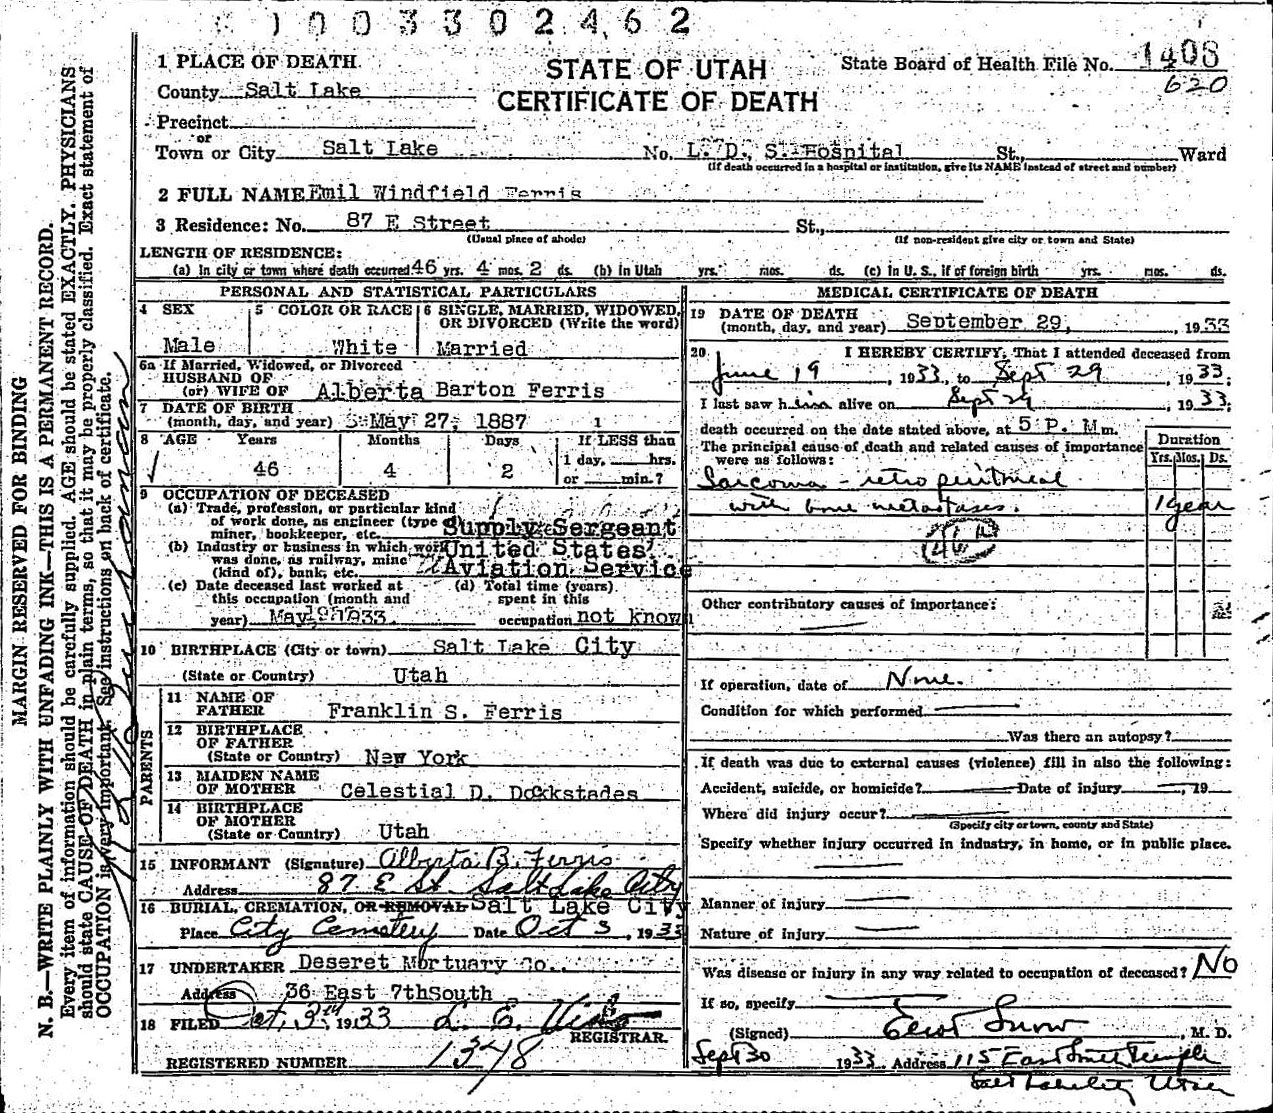 1003302462
1 PLACE OF DEATH
STATE OF UTAH
CERTIFICATE OF DEATH
State Board of Health File No. 1408
620
County Salt Lake
Precinct
or
Town or City Salt Lake No. L. D. S. Hospital St., Ward
(If death occurred in a hospital or institution, give its NAME instead of street and number)
2 FULL NAME Emil Windfield Ferris
3 Residence: No. 87 E Street St.,
(Usual place of abode) (If non-resident give city or town and State)
LENGTH OF RESIDENCE:
(a) In city or town where death occurred 46 yrs. 4 mos. 2 ds. (b) In Utah yrs. mos. ds. (c) In U. S., if of foreign birth yrs. mos. ds.
PERSONAL AND STATISTICAL PARTICULARS
4 SEX
Male
5 COLOR OR RACE
White
6 SINGLE, MARRIED, WIDOWED, OR DIVORCED (Write the word)
Married
6a If Married, Widowed, or Divorced
HUSBAND OF
(or) WIFE OF Alberta Barton Ferris
7 DATE OF BIRTH
(month, day, and year) May 27, 1887
8 AGE Years Months Days If LESS than
46 4 2 1 day, hrs.
or min.?
9 OCCUPATION OF DECEASED
(a) Trade, profession, or particular kind
of work done, as engineer (type of)
miner, bookkeeper, etc. Supply Sergeant
(b) Industry or business in which work
was done, as railway, mine
(kind of), bank, etc. United States
Aviation Service
(c) Date deceased last worked at
this occupation (month and
year) May 1933
(d) Total time (years)
spent in this
occupation not known
10 BIRTHPLACE (City or town) Salt Lake City
(State or Country) Utah
PARENTS
11 NAME OF
FATHER Franklin S. Ferris
12 BIRTHPLACE
OF FATHER
(State or Country) New York
13 MAIDEN NAME
OF MOTHER Celestial D. Dockstades
14 BIRTHPLACE
OF MOTHER
(State or Country) Utah
15 INFORMANT (Signature) Alberta B. Ferris
Address 87 E St. Salt Lake City
16 BURIAL, CREMATION, OR REMOVAL Salt Lake City
Place City Cemetery Date Oct 3, 1933
17 UNDERTAKER Deseret Mortuary Co.
Address 36 East 7thSouth
18 FILED Oct. 3rd 1933 L. E.
REGISTRAR.
REGISTERED NUMBER 1348
MEDICAL CERTIFICATE OF DEATH
19 DATE OF DEATH
(month, day, and year) September 29, 1933
20 I HEREBY CERTIFY, That I attended deceased from
June 19, 1933, to Sept 29, 1933;
I last saw him alive on Sept 29, 1933;
death occurred on the date stated above, at 5 P. M m.
The principal cause of death and related causes of importance
were as follows:
Duration
Yrs. Mos. Ds.
Sarcoma - retroperitoneal
with bone metastases. 1 year
Other contributory causes of importance:
If operation, date of None.
Condition for which performed
Was there an autopsy?
If death was due to external causes (violence) fill in also the following:
Accident, suicide, or homicide? Date of injury , 19
Where did injury occur?
(Specify city or town, county and State)
Specify whether injury occurred in industry, in home, or in public place.
Manner of injury
Nature of injury
Was disease or injury in any way related to occupation of deceased? No
If so, specify
(Signed) Snow, M. D.
Sept 30 1933 Address 115 East South Temple
Salt Lake City Utah
MARGIN RESERVED FOR BINDING
N. B.—WRITE PLAINLY WITH UNFADING INK—THIS IS A PERMANENT RECORD.
Every item of information should be carefully supplied. AGE should be stated EXACTLY. PHYSICIANS
should state CAUSE OF DEATH in plain terms, so that it may be properly classified. Exact statement of
OCCUPATION is very important. See instructions on back of certificate.